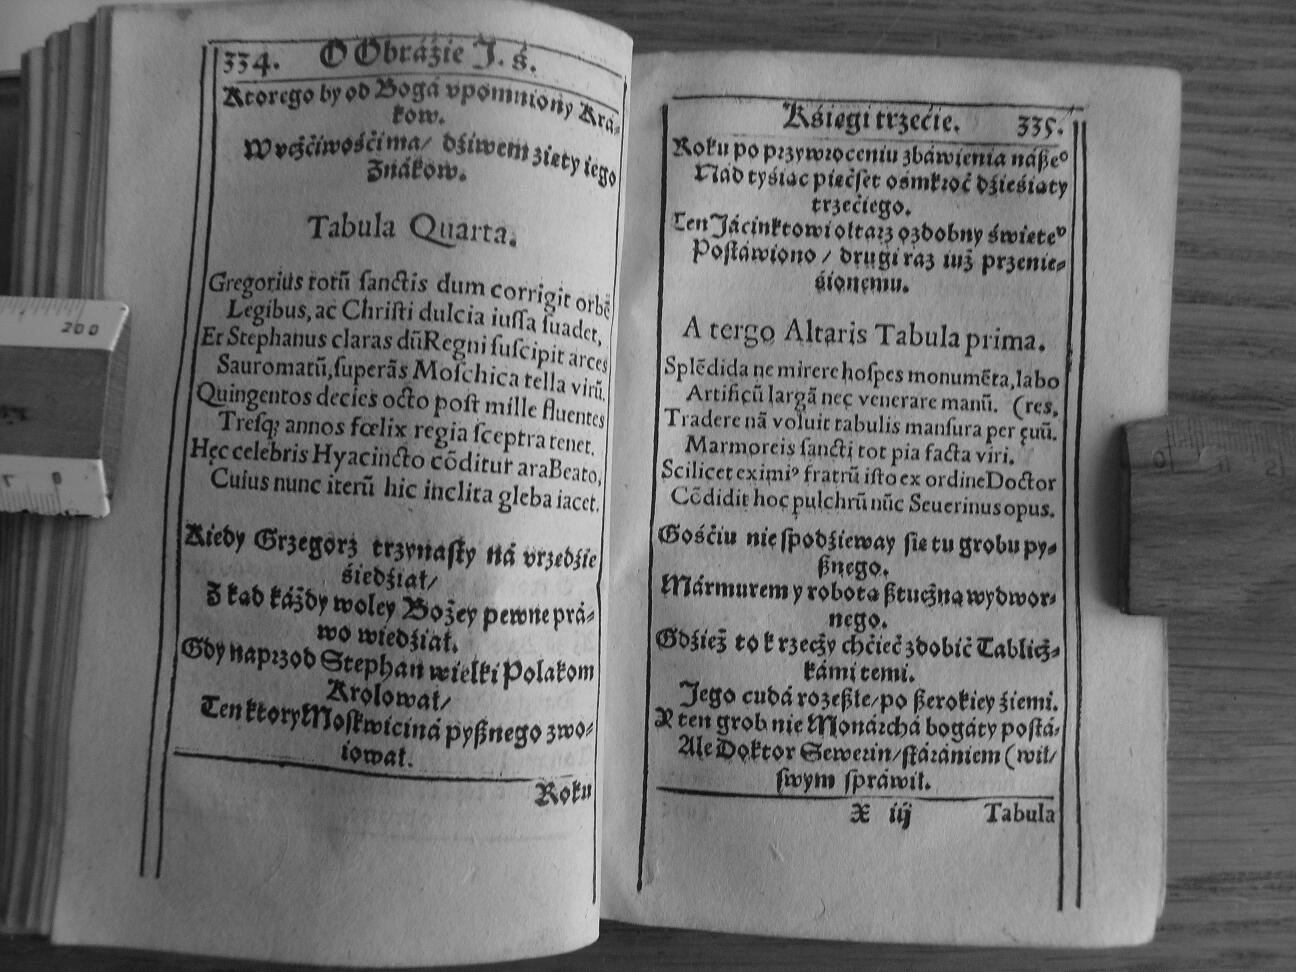 334. O Obráźie J. ś.
Ktorego by od Bogá vpomniony Krá-
kow.
W vcżćiwośći ma/ dźiwem zięty iego
Znákow.
Tabula Quarta.
Gregorius totũ sanctis dum corrigit orbẽ
Legibus, ac Christi dulcia iussa suadet,
Et Stephanus claras dũ Regni suscipit arces
Sauromatũ, superãs Moschica tella virũ.
Quingentos decies octo post mille fluentes
Tresq; annos fœlix regia sceptra tenet.
Hęc celebris Hyacincto cõditur ara Beato,
Cuius nunc iterũ hic inclita gleba iacet.
Kiedy Grzegorz trzynasty ná vrzędźie
śiedźiał/
Z kąd káżdy woley Bożey pewne prá-
wo wiedźiał.
Gdy náprzod Stephan wielki Polakom
Krolował/
Ten ktory Moskwiciná pyßnego zwo-
iował.
Roku
Kśięgi trzećie. 335.
Roku po przywroceniu zbáwienia náßeº
Nád tyśiąc pięćset ośmkroć dźieśiąty
trzećiego.
Ten Jácinktowi ołtarz ozdobny święteº
Postáwiono / drugi raz iuż przenie-
śionemu.
A tergo Altaris Tabula prima.
Splẽdida ne mirere hospes monumẽta, labo
Artificũ largã nec venerare manũ. (res,
Tradere nã voluit tabulis mansura per ęuũ.
Marmoreis sancti tot pia facta viri.
Scilicet eximiꝰ fratrũ isto ex ordine Doctor
Cõdidit hoc pulchrũ nũc Seuerinus opus.
Gośćiu nie spodźieway się tu grobu py-
ßnego.
Mármurem y robotą ßtucżną wydwor-
nego.
Gdźież to k rzecży chćieć zdobić Tablicż-
kámi temi.
Jego cudá rozeßłe/ po ßerokiey źiemi.
A ten grob nie Monárchá bogáty postá-
Ale Doktor Sewerin/ stárániem (wił/
swym spráwił.
X iij Tabula